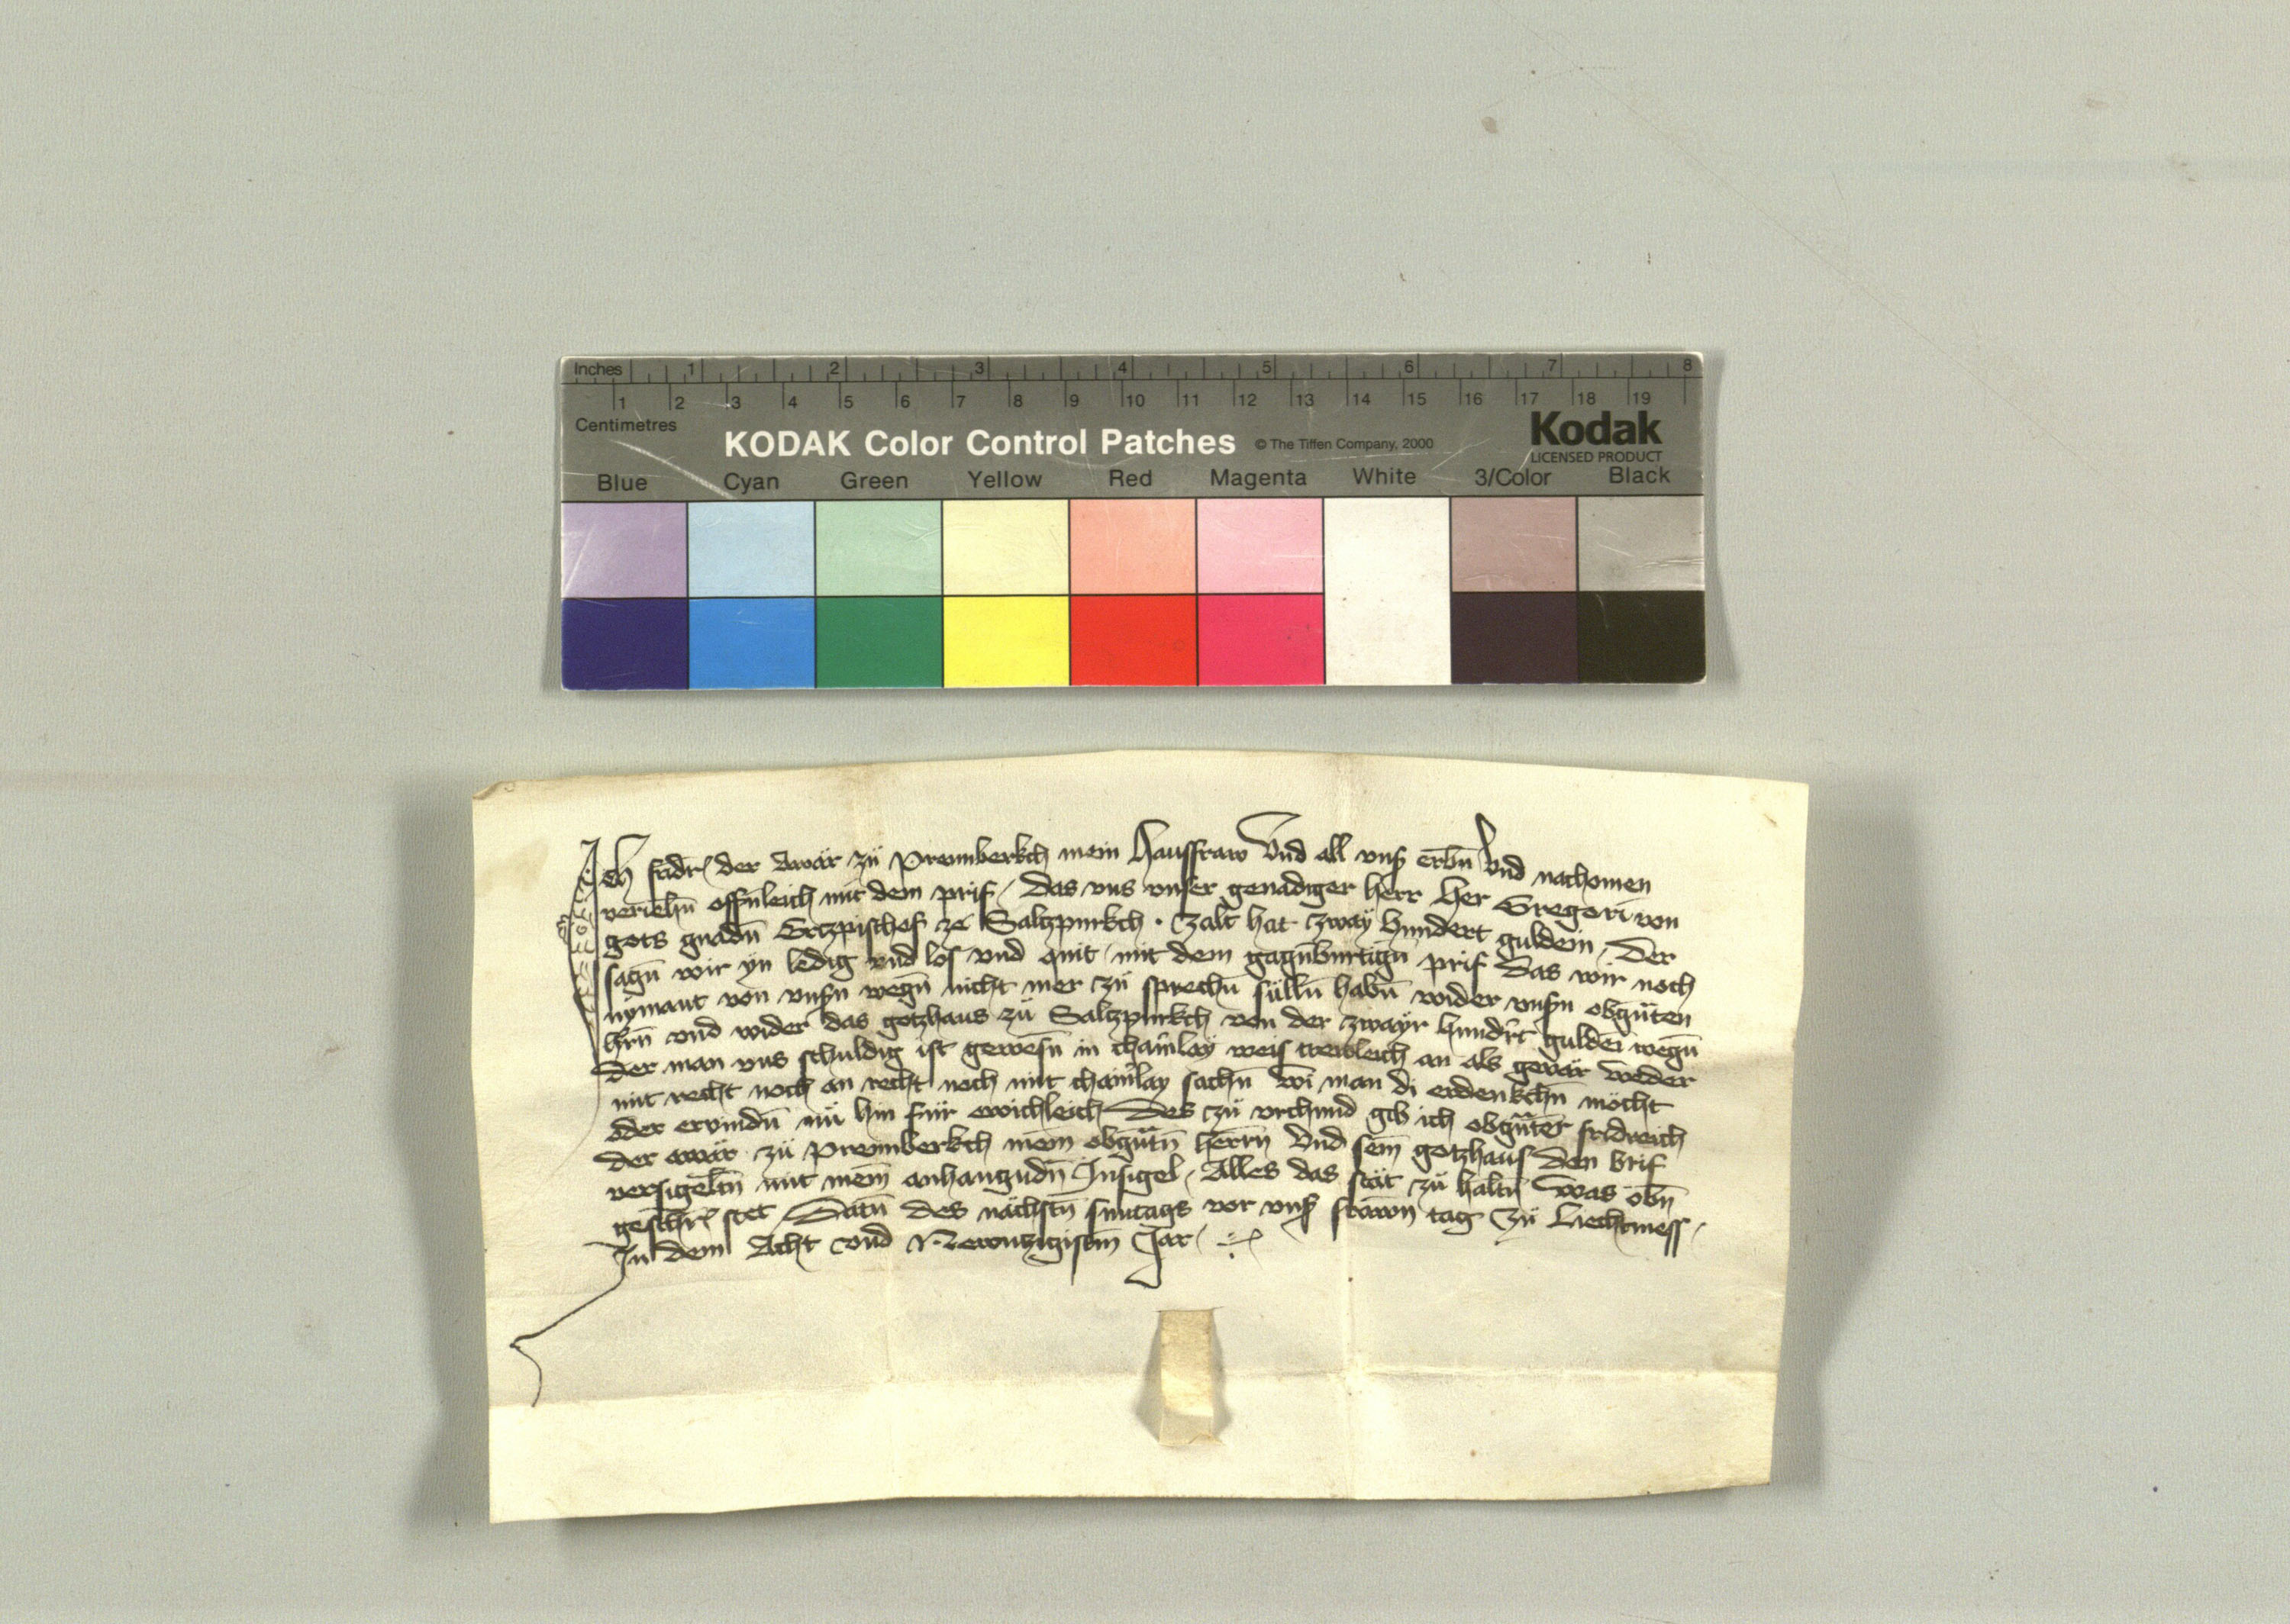 Inches 1 2 3 4 5 6 7 8
1 2 3 4 5 6 7 8 9 10 11 12 13 14 15 16 17 18 19
Centimetres
KODAK Color Control Patches © The Tiffen Company, 2000 Kodak
LICENSED PRODUCT
Blue Cyan Green Yellow Red Magenta White 3/Color Black
Ich fridr der Awär zü Prennberkch mein Hausfraw Vnd all vnß erbn̄ Vnd nachomen
veriehn̄ offn̄leich mit dem prif / das vns vnser genadiger herr Her Gregori von
gots gnadn̄ Ertzpischof ze Saltzpurkch · Czalt hat zwaÿ hundert guldein / Der
sagn̄ wir yn ledig vnd los vnd quit / mit dem gagn̄burtign̄ prif das wir noch
nÿmant von vnßn wegn̄ nicht mer zü sprechn̄ sülln̄ habn̄ wider vnßn obgn̄ten
hrn̄ vnd wider das gotzhaus zü Saltzpurkch von der zwaÿr hundr̄t guldei wegn̄
Der man vns schuldig ist gewesn̄ in chain̄laÿ weis trewleich an als gevär weder
mit recht noch an recht noch mit chain̄lay sachn̄ Wi man di erdenkchn̄ möcht
oder ervindn̄ nü hin für ewichleich Des zü vrchund gib ich obgn̄ter fridreich
Der awär zü Prennberkch mein̄ obgn̄tn̄ herrn Vnd sein̄ gotzhaus den brif
versigeltn̄ mit mein̄ anhangndn̄ Insigel / Alles das stät zü haltn̄ Was obn̄
geschr stet / Datu̅ des nächstn̄ suntags vor vnß frawn̄ tag zü Liechtmess /
In dem Acht vnd Newntzigistm̄ Jar /